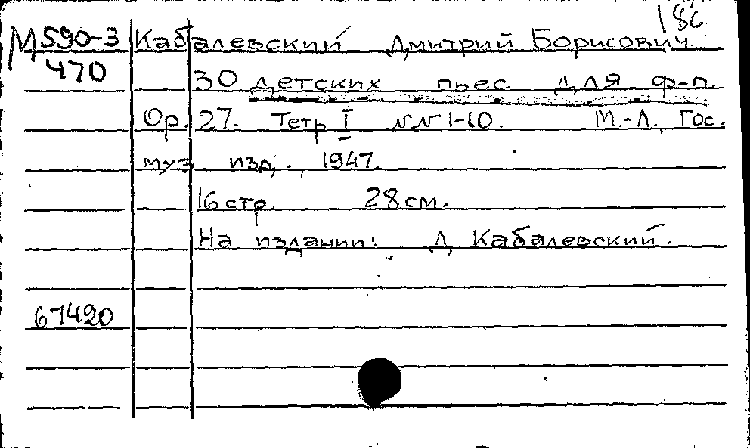 186
М590-3 Кабалевский Дмитрий Борисович
470 30 детских пьес для ф-п.
Op. 27. Тетр I №№ 1-10. М.-Л, Гос.
муз изд. 1947.
16 стр 28 см.
На издании: Д Кабалевский.
67420